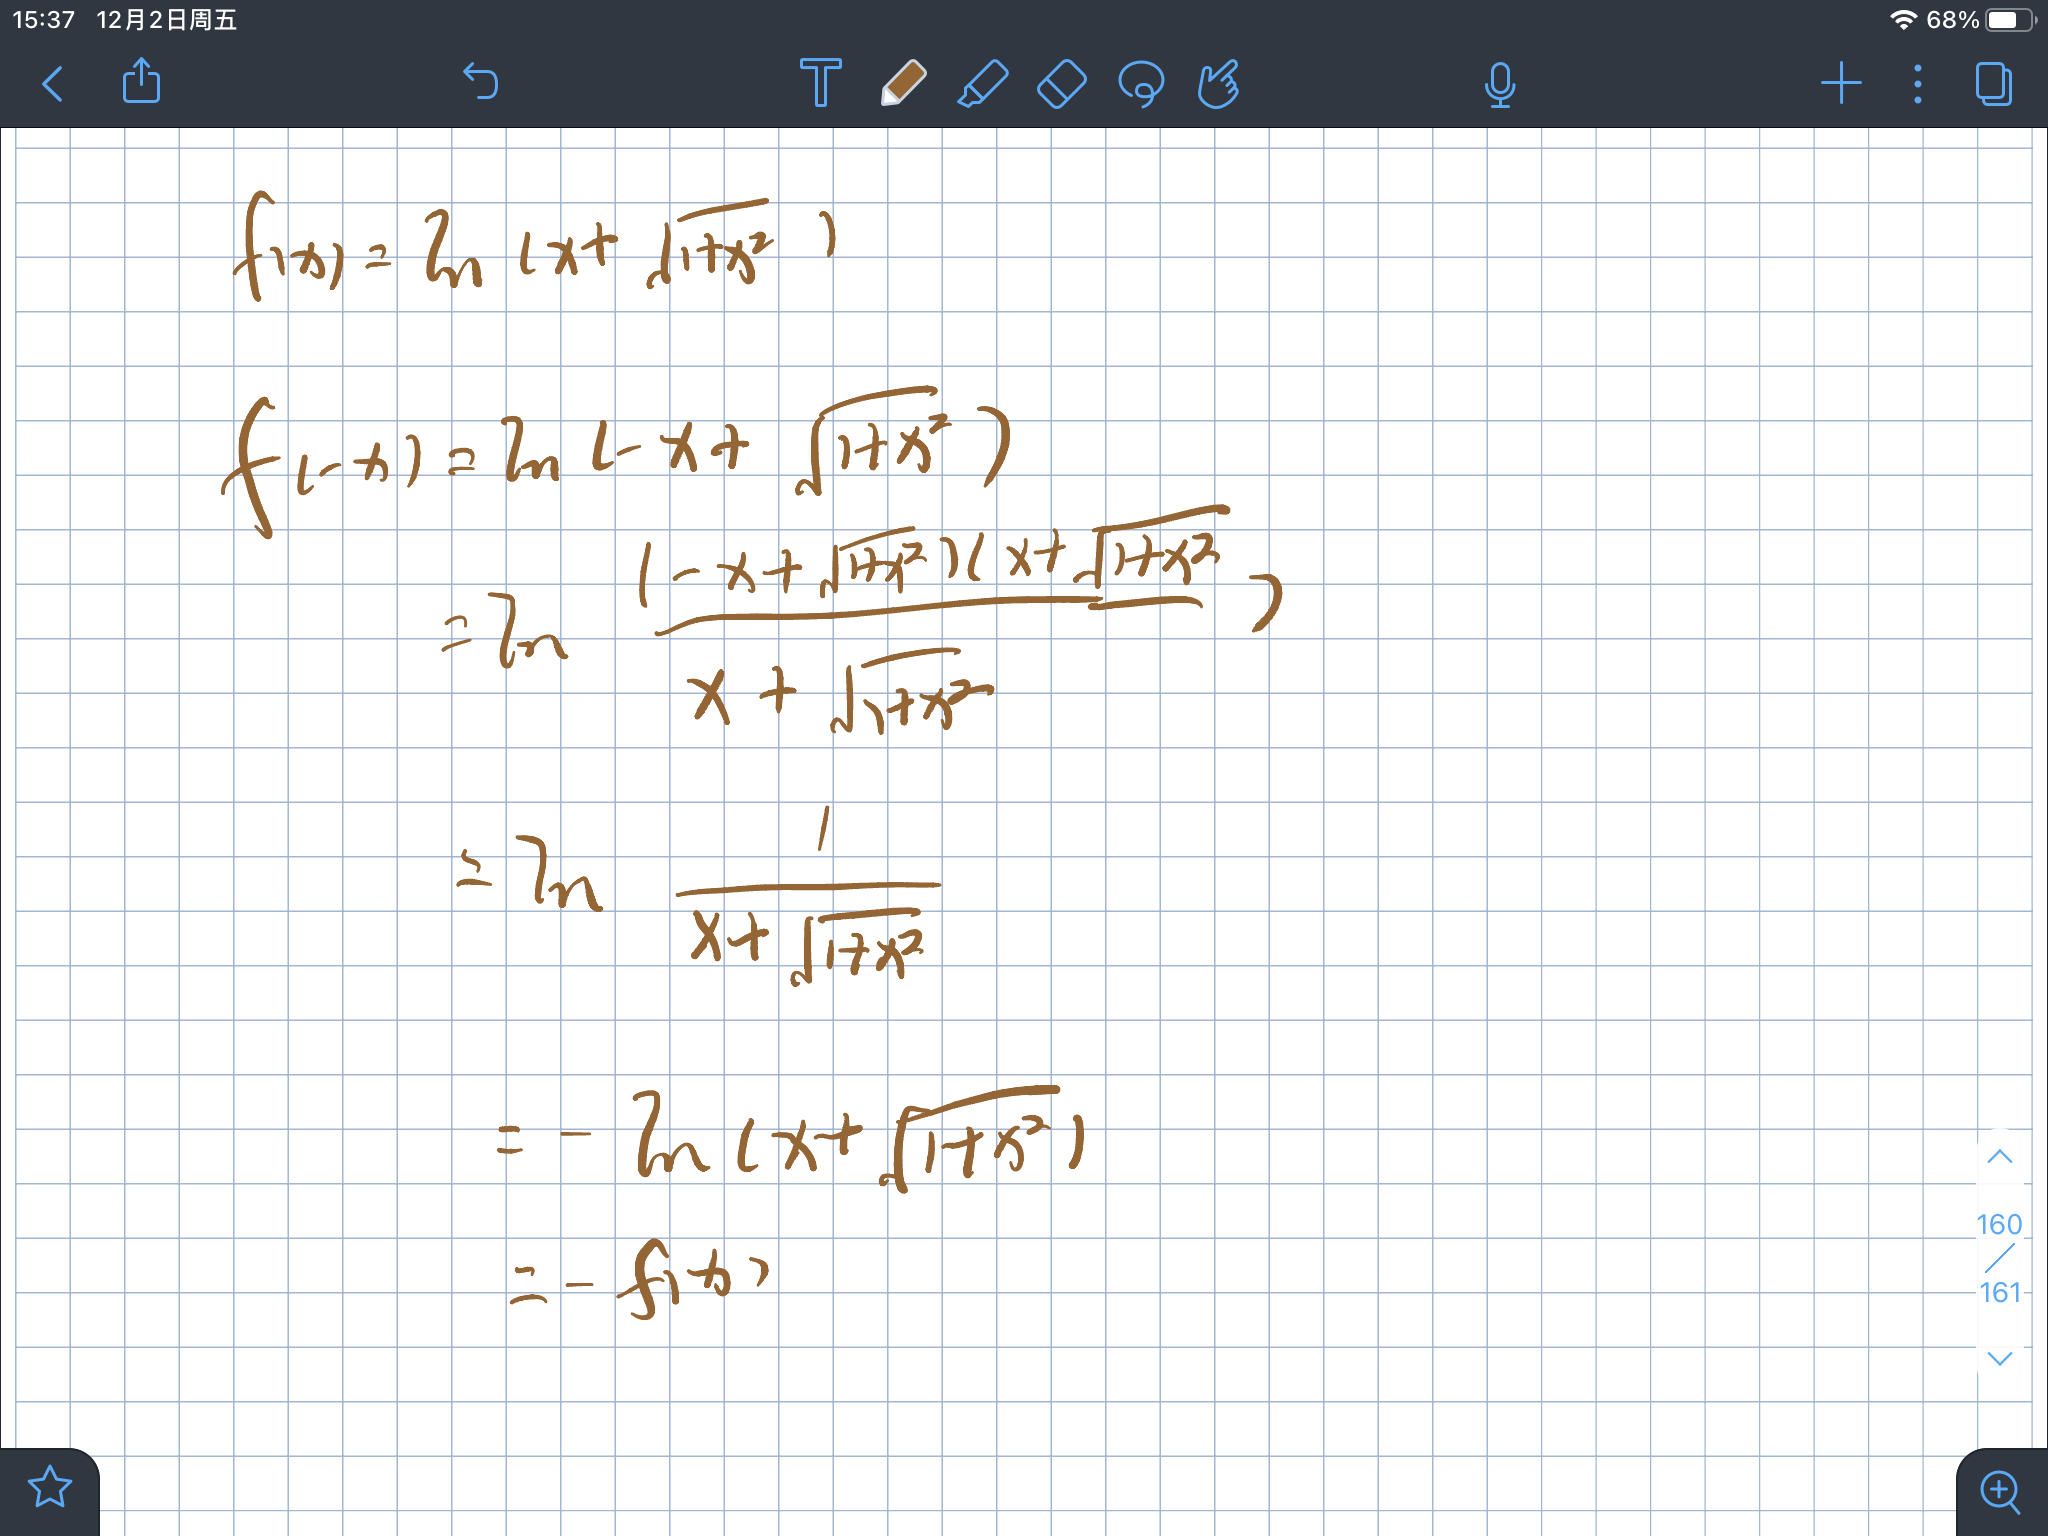 15:37 12月2日周五 68%
T
f(x) = ln (x + √(1+x²))
f(-x) = ln (-x + √(1+x²))
= ln ((-x + √(1+x²))(x + √(1+x²))) / (x + √(1+x²))
= ln 1 / (x + √(1+x²))
= - ln (x + √(1+x²))
= - f(x)
160
161